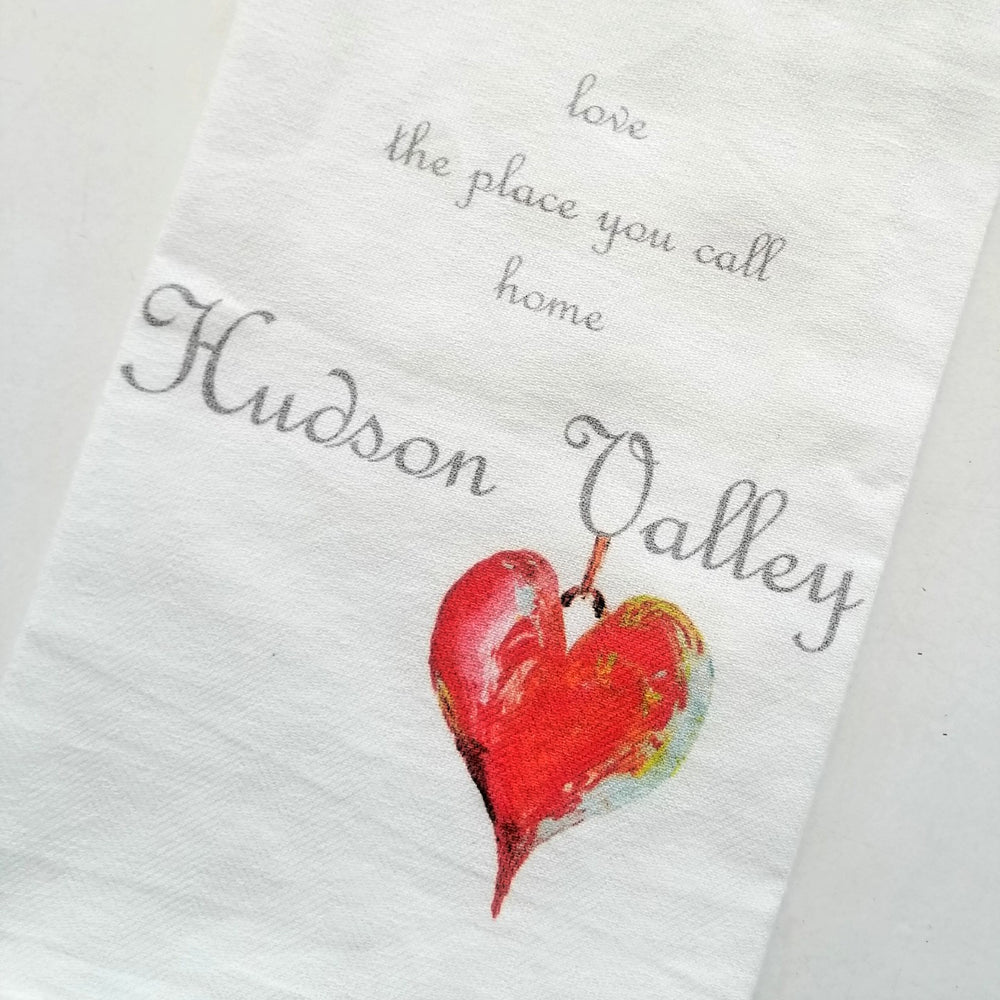 love
the place you call
home
Hudson Valley